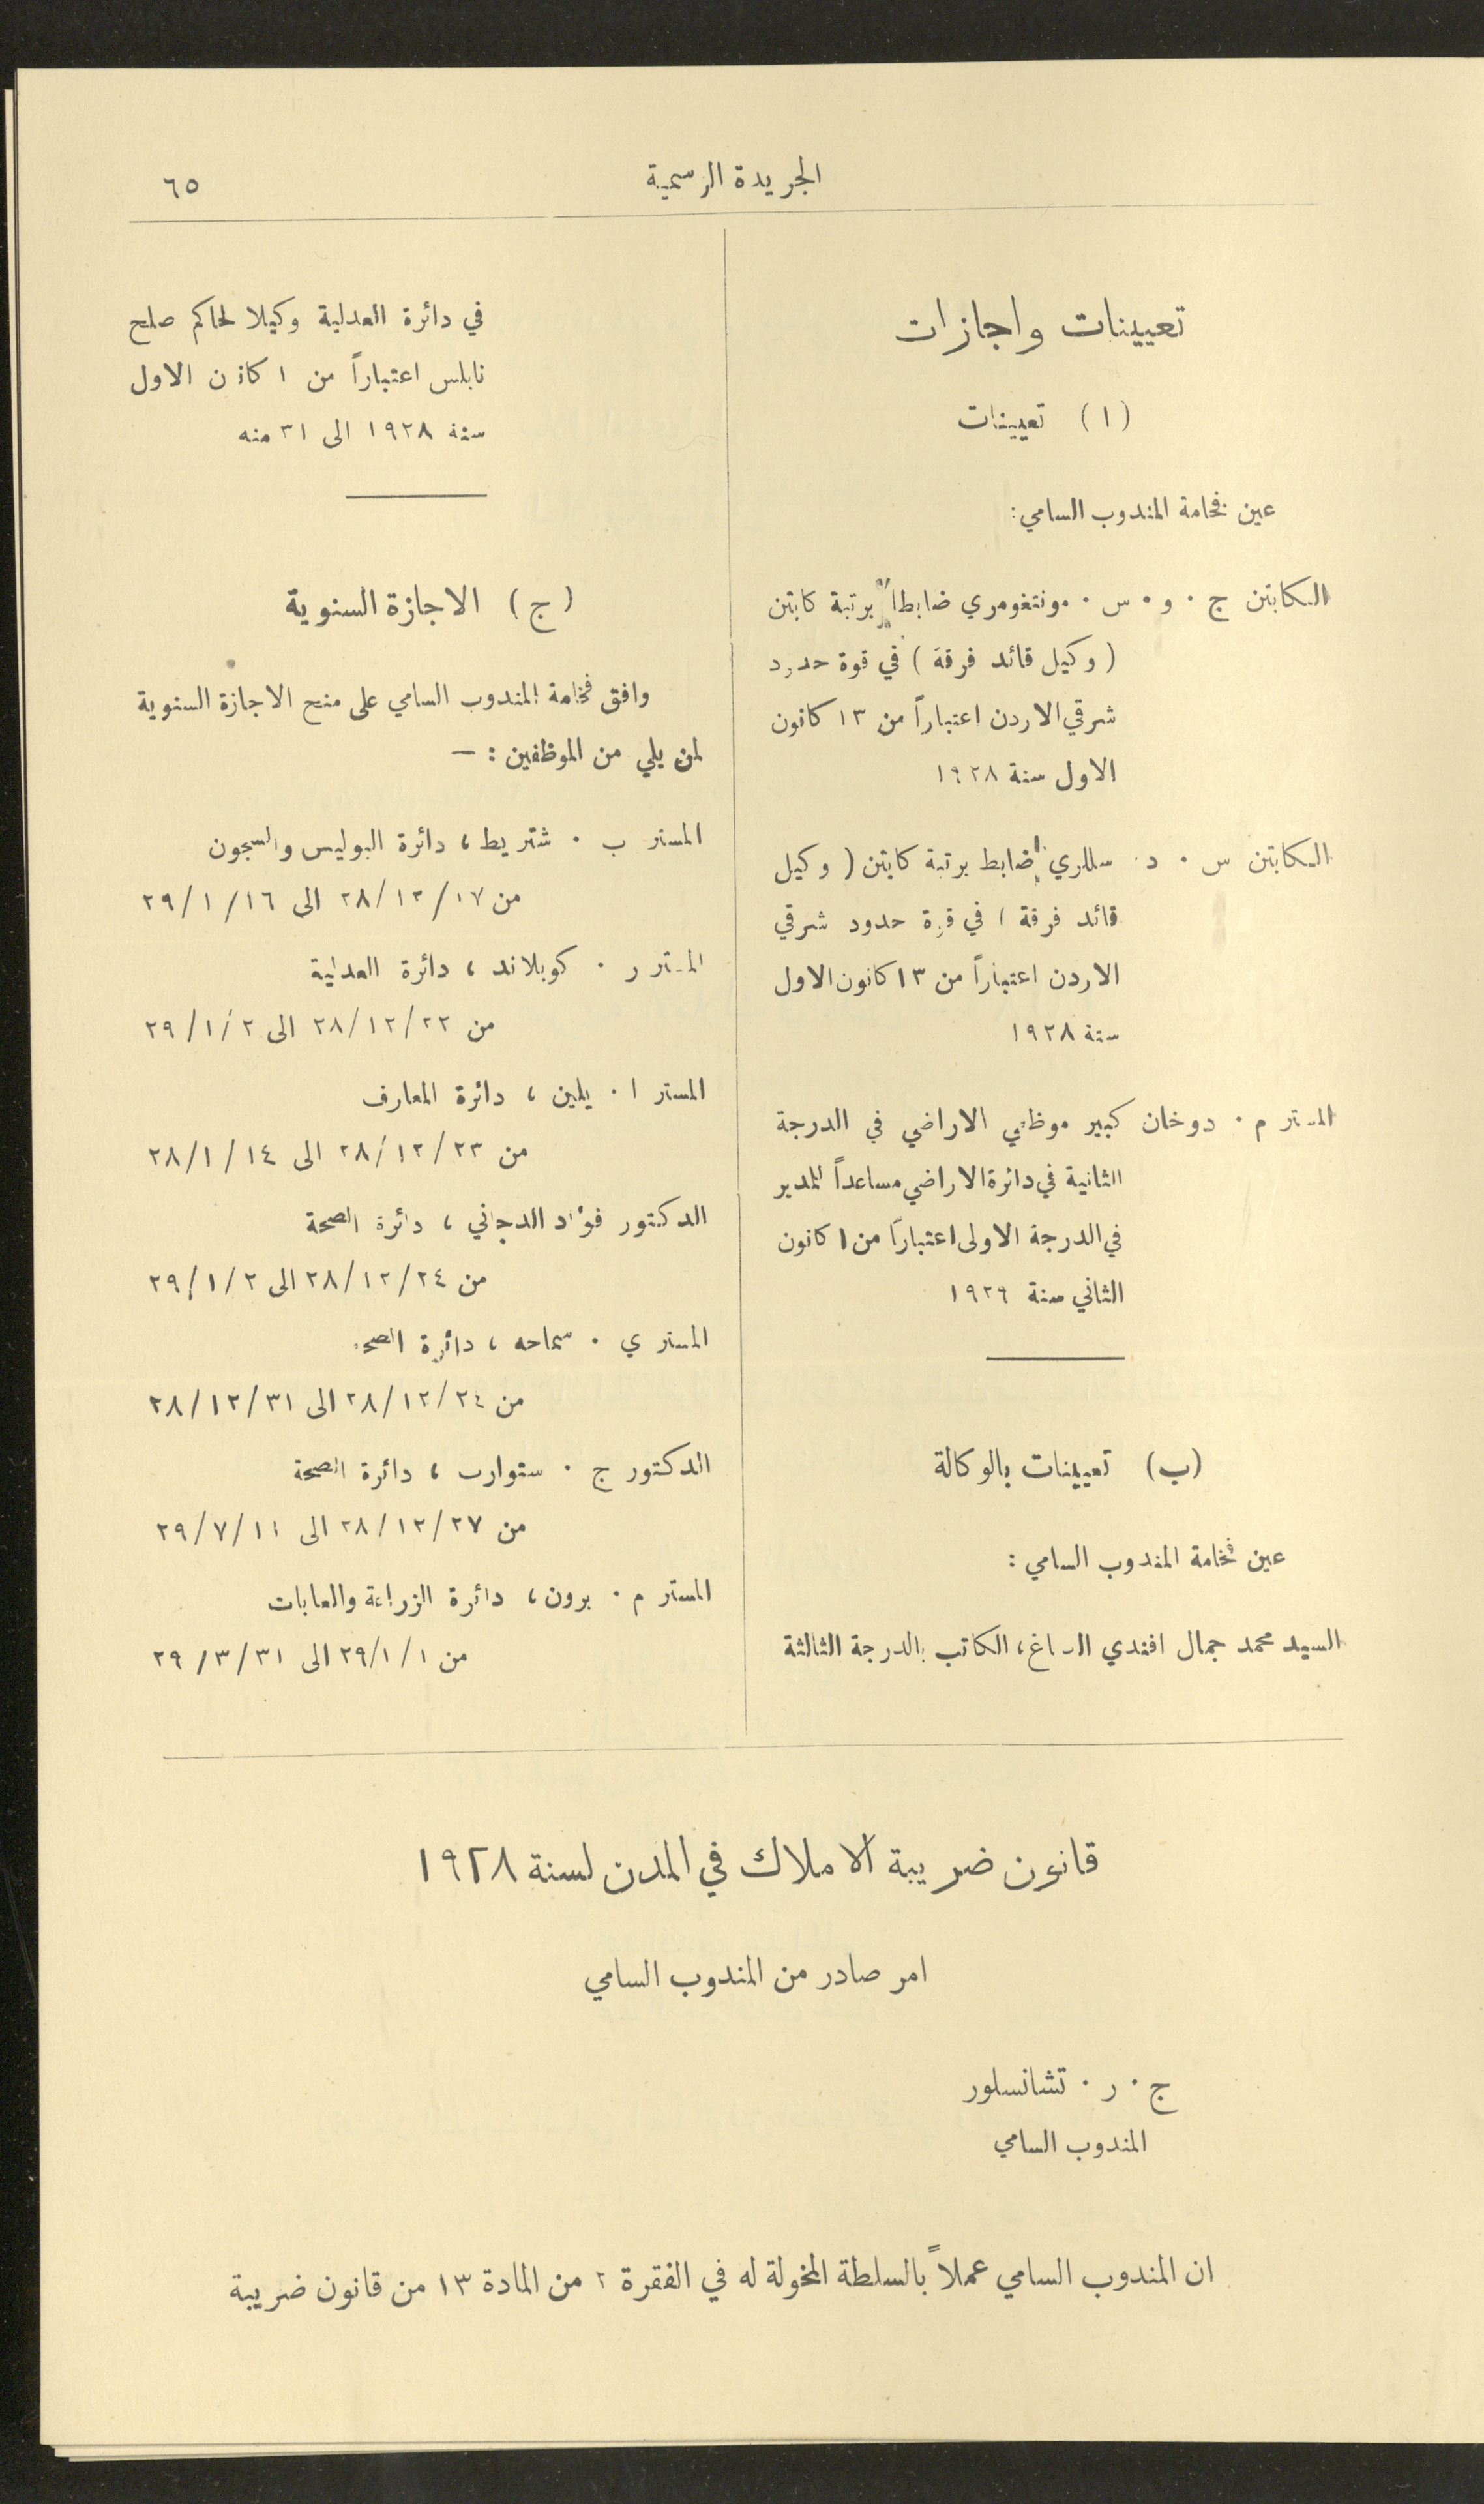 الجريدة الرسمية
٦٥
تعيينات واجازات
(١) تعيينات
عين فخامة المندوب السامي:
الكابتن ج . و . س . مونتغومري ضابطاً برتبة كابتن
(وكيل قائد فرقة) في قوة حدود
شرقي الاردن اعتباراً من ١٣ كانون
الاول سنة ١٩٢٨
الكابتن س . د . سللري ضابط برتبة كابتن (وكيل
قائد فرقة) في قوة حدود شرقي
الاردن اعتباراً من ١٣ كانون الاول
سنة ١٩٢٨
المستر م . دوخان كبير موظفي الاراضي في الدرجة
الثانية في دائرة الاراضي مساعداً للمدير
في الدرجة الاولى اعتباراً من ١ كانون
الثاني سنة ١٩٢٩
(ب) تعيينات بالوكالة
عين فخامة المندوب السامي:
السيد محمد جمال افندي ، الكاتب بالدرجة الثالثة
في دائرة العدلية وكيلا لحاكم صلح
نابلس اعتباراً من ١ كانون الاول
سنة ١٩٢٨ الى ٣١ منه
(ج) الاجازة السنوية
وافق فخامة المندوب السامي على منح الاجازة السنوية
لمن يلي من الموظفين: —
المستر ب . شتريط، دائرة البوليس والسجون
من ٢٨/١٢/١٧ الى ٢٩/١/١٦
المستر ر . كوبلاند، دائرة العدلية
من ٢٨/١٢/٢٢ الى ٢٩/١/٢
المستر ا . يلين، دائرة المعارف
من ٢٨/١٢/٢٣ الى ٢٨/١/١٤
الدكتور فؤاد الدجاني، دائرة الصحة
من ٢٨/١٢/٢٤ الى ٢٩/١/٢
المستر ي . سماحه، دائرة الصحة
من ٢٨/١٢/٢٤ الى ٢٨/١٢/٣١
الدكتور ج . ستوارت، دائرة الصحة
من ٢٨/١٢/٢٧ الى ٢٩/٧/١١
المستر م . برون، دائرة الزراعة والغابات
من ٢٩/١/١ الى ٢٩/٣/٣١
قانون ضريبة الاملاك في المدن لسنة ١٩٢٨
امر صادر من المندوب السامي
ج . ر . تشانسلور
المندوب السامي
ان المندوب السامي عملاً بالسلطة المخولة له في الفقرة ٢ من المادة ١٣ من قانون ضريبة